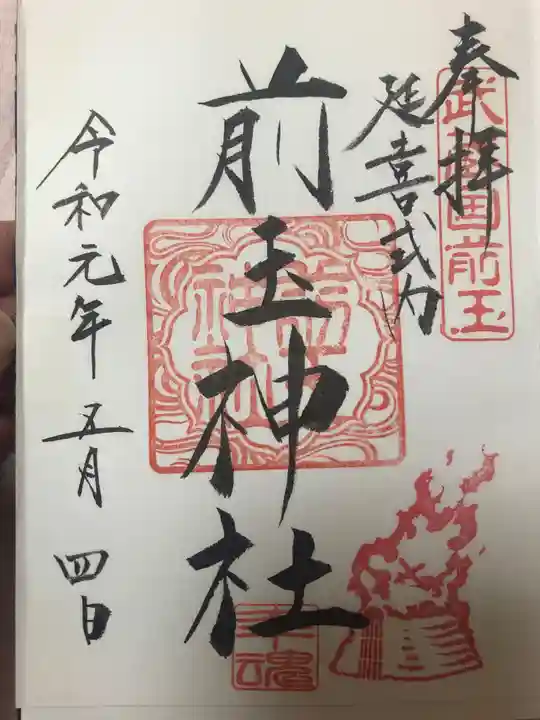 奉拝
延喜式内
武蔵国前玉
前玉神社
前玉神社
幸魂
令和元年五月四日